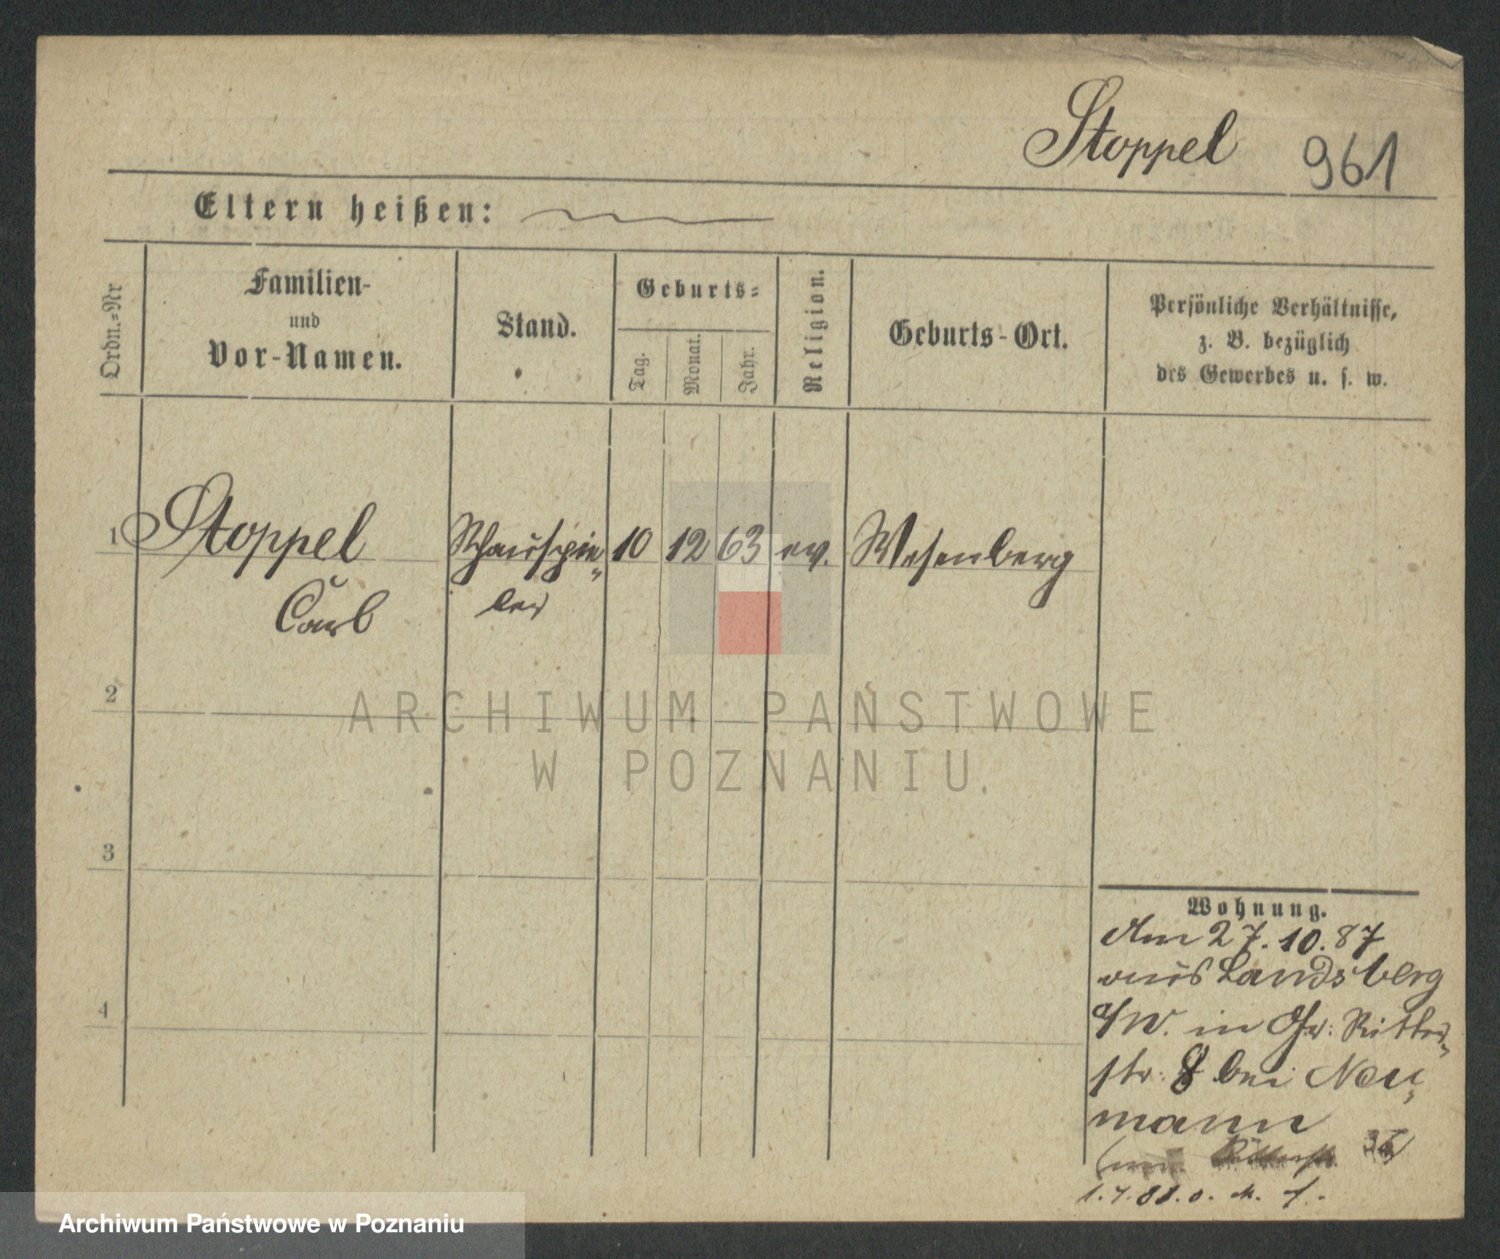 Stoppel 961
Eltern heißen:
Ordn.=Nr
Familien-
und
Vor-Namen.
Stand.
Geburts=
Tag.
Monat.
Jahr.
Religion.
Geburts-Ort.
Persönliche Verhältnisse,
z. B. bezüglich
des Gewerbes u. s. w.
1 Stoppel Schauspie= 10 12 63 ev. Wesenberg
Carl ler
2
3
4
Wohnung.
Am 27.10.87
aus Landsberg
a/W. in Gr: Ritter=
str. 8 bei Neu=
mann
36
ARCHIWUM PAŃSTWOWE
W POZNANIU
Archiwum Państwowe w Poznaniu